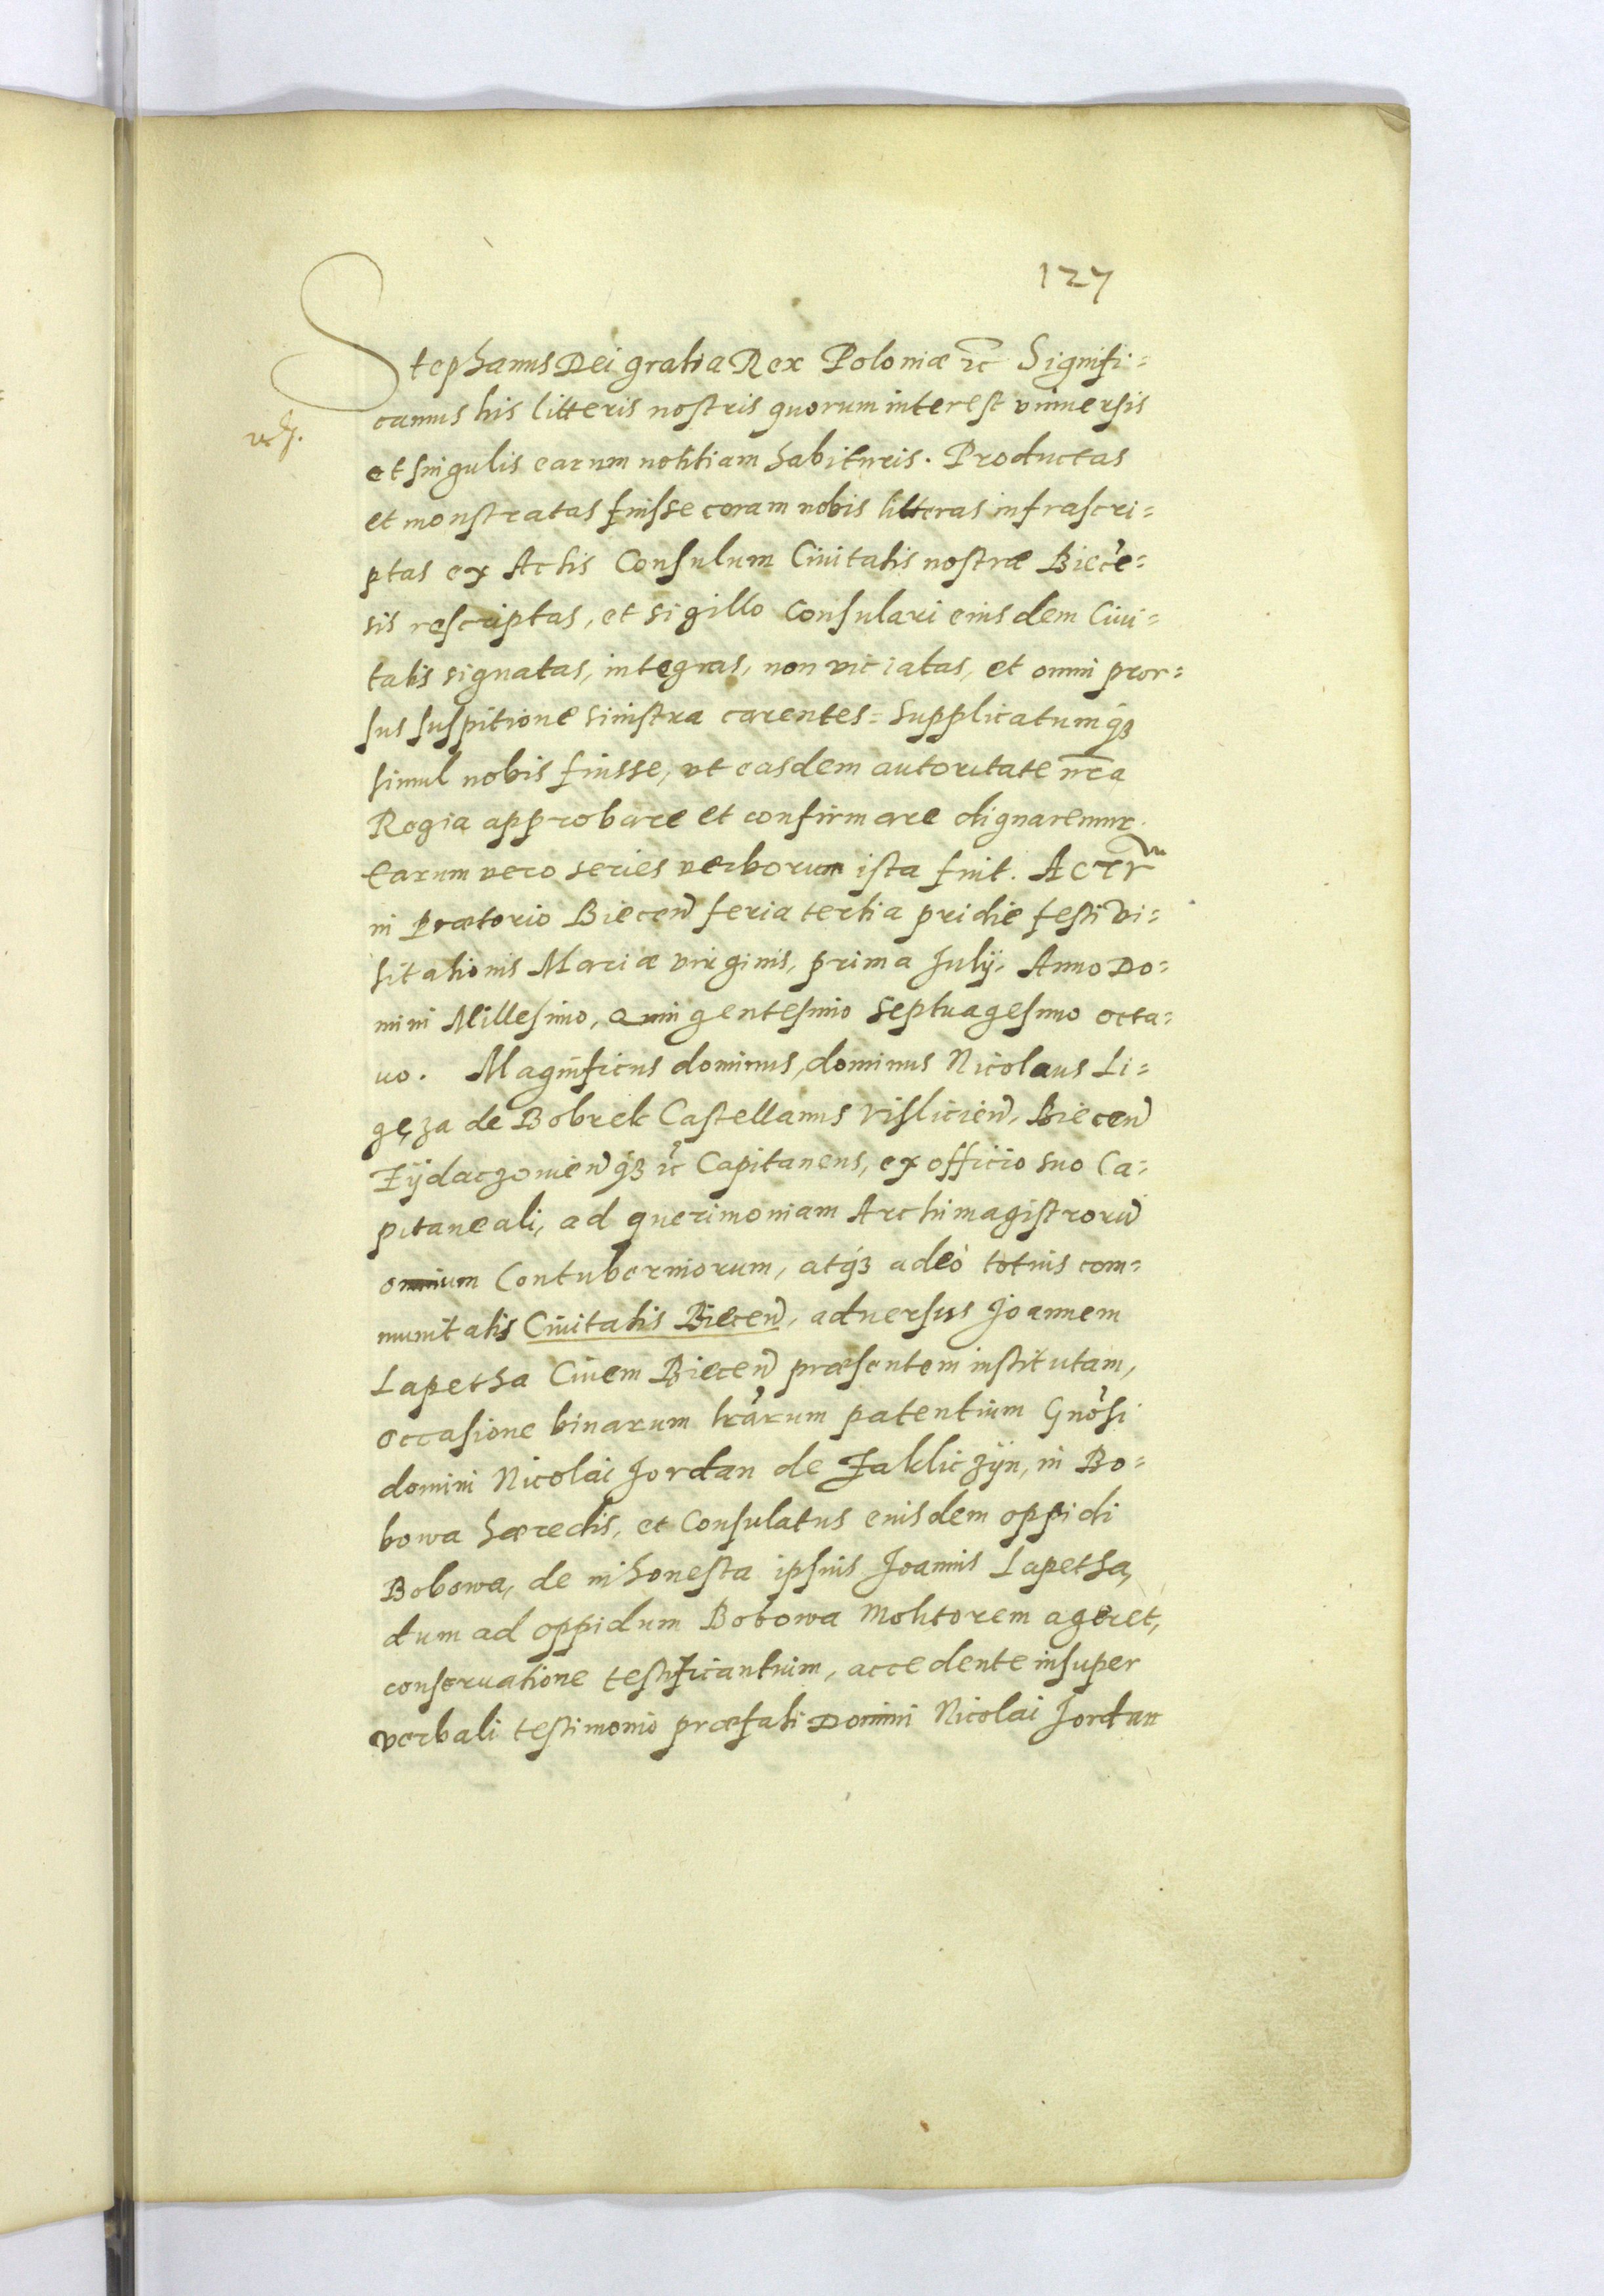 127
Stephanus Dei gratia Rex Poloniæ etc Signifi=
camus his litteris nostris quorum interest vniuersis
et singulis earum notitiam habituris. Productas
et monstratas fuisse coram nobis litteras infrascri=
ptas ex Actis Consulum Ciuitatis nostræ Biece͂=
sis rescriptas, et sigillo Consulari eiusdem Ciui=
tatis signatas, integras, non viciatas, et omni pror=
sus suspitione sinistra carentes = Supplicatumq3
simul nobis fuisse, vt easdem autoritate nr̃a
Regia approbare et confirmare dignaremur.
Earum vero series verborum ista fuit. Actũ
in Prætorio Biecen̄ feria tertia pridie festi Vi=
sitationis Mariæ virginis, prima July, Anno Do=
mini Millesimo, Quingentesimo Septuagesimo octa=
uo. Magnificus dominus, dominus Nicolaus Li=
gęza de Bobrek Castellanus Vislicien̄, Biecen̄
Zÿdaczouien̄q3 etc Capitaneus, ex officio suo Ca=
pitaneali, ad querimoniam Archimagistrorū
omnium Contuberniorum, atq3 adeò totius com=
munitatis Ciuitatis Biecen̄, aduersus Joannem
Lapetha Ciuem Biecen̄ præsentem institutam,
occasione binarum lr̃arum patentium Gn̄osi
domini Nicolai Jordan de Zakliczÿn, in Bo=
bowa hæredis, et Consulatus eiusdem oppidi
Bobowa, de inhonesta ipsius Joannis Lapetha,
dum ad oppidum Bobowa Molitorem ageret,
conseruatione testificantium, accedente insuper
verbali testimonio præfati Domini Nicolai Jordan